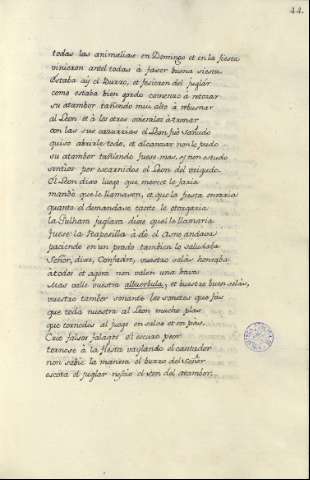 44.
todas las animalias en Domingo et en la fiesta
vinieron antel todas à faser buena siesta
Estaba aÿ el Burro, et fesieron del juglar
como estaba bien gordo comenzo à retozar
su atambor tañiendo mui alto à rebusnar
al Leon et à los otros querialos atronar
con las sus cazurrias el Leon fue sañudo
quiso abrirle todo, et alcanzar non le pudo
su atambor tañiendo fuese mas, ÿ non estudo
sentiose por escarnido el Leon del orejudo
El Leon dixo luego que merced le faria
mandò que le llamasen, et que la fiesta onraria
quanto el demandase tanto le otorgaria
la Gulhara juglara dixo quel le llamaria
fuese la Raposilla à dò el Asno andava
paciendo en un prado tambien lo saludaba
Señor, dixo, Confradre, vuestro solàs honraba
à todos et agora non valen una hava
Mas valìe vuestra albuerbula, et vuestro buen solàs,
vuestro tambor sonante los sonetes que fas
que toda nuestra al Leon mucho plas
que tornedes al juego en salvo et en pas.
Creò falsos falagos el escapò peor
tornose à la fiesta baylando el cantador
non sabìe la manera el burro del Señor
escota el juglar nescio el son del atambor.